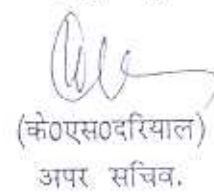 (के0एस0दरियाल)
अपर सचिव.